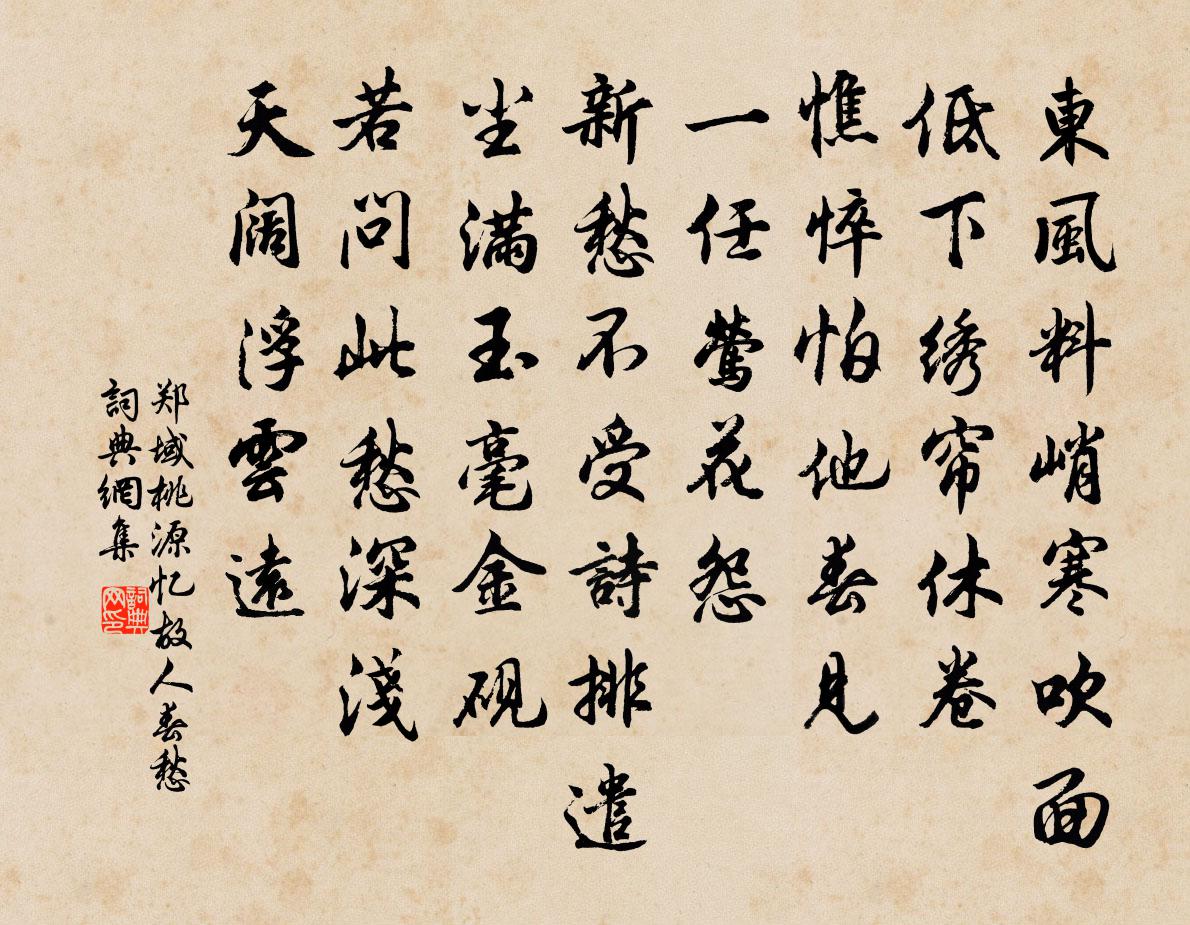 東風料峭寒吹面
低下绣帘休卷
憔悴怕他春見
一任鶯花怨
新愁不受詩排遣
尘滿玉毫金砚
若问此愁深淺
天阔浮雲遠
郑域桃源忆故人春愁
詞典網集
詞典网印